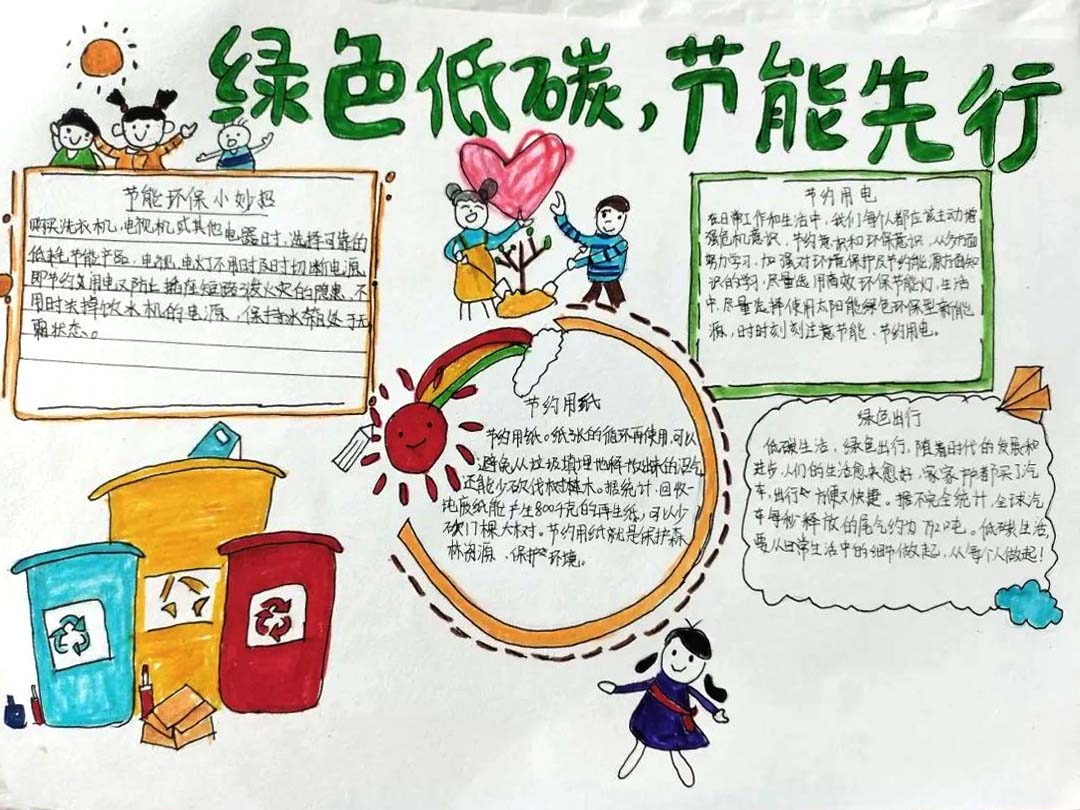 绿色低碳，节能先行
节能环保小妙招
购买洗衣机，电视机或其他电器时，选择可靠的
低耗节能产品，电视，电灯不用时及时切断电源
即节约用电又防止插座短路引发火灾的隐患，不
用时关掉饮水机的电源，保持冰箱处于无
霜状态。
节约用电
在日常工作和生活中，我们每个人都应该主动增
强危机意识，节约意识和环保意识，从多方面
努力学习，加强对环境保护及节约能源方面知
识的学习，尽量选用高效环保节能灯，生活
中，尽量选择使用太阳能绿色环保型新能
源，时时刻刻注意节能，节约用电。
节约用纸
节约用纸。纸张的循环再使用，可以
避免从垃圾填埋地释放出来的沼气
还能少砍伐树林木。据统计，回收一
吨废纸能产生800千克的再生纸，可以少
砍17棵大树。节约用纸就是保护森
林资源，保护环境。
绿色出行
低碳生活，绿色出行，随着时代的发展和
进步，人们的生活愈来愈好，家家户户都买了汽
车，出行方便又快捷。据不完全统计，全球汽
车每秒释放的尾气约为吨。低碳生活，
要从日常生活中的细节做起，从每个人做起！